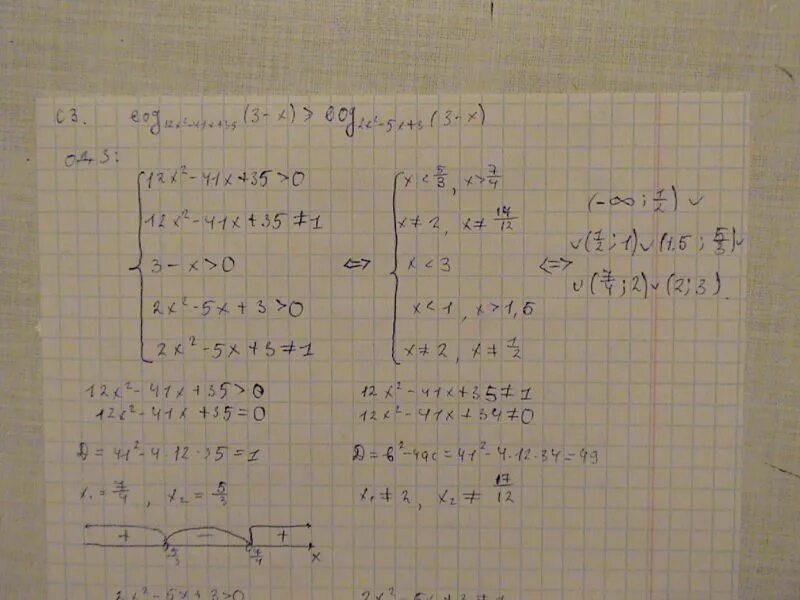 С3. log₁₂ₓ²₋₄₁ₓ₊₃₅ (3-x) > log₂ₓ²₋₅ₓ₊₃ (3-x)
ОДЗ:
12x²-41x+35>0
12x²-41x+35≠1
3-x>0
2x²-5x+3>0
2x²-5x+3≠1
<=>
x<5/3, x>7/4
x≠2, x≠17/12
x<3
x<1, x>1,5
x≠2, x≠1/2
<=>
(-∞; 1/2) ∪
∪(1/2; 1)∪(1,5; 5/3)∪
∪(7/4; 2)∪(2; 3).
12x²-41x+35>0
12x²-41x+35=0
D=41²-4·12·35=1
x₁=7/4, x₂=5/3
+ - +
5/3 7/4 x
12x²-41x+35≠1
12x²-41x+34≠0
D=b²-4ac=41²-4·12·34=49
x₁≠2, x₂≠17/12
2x²-5x+3>0
2x²-5x+3≠1